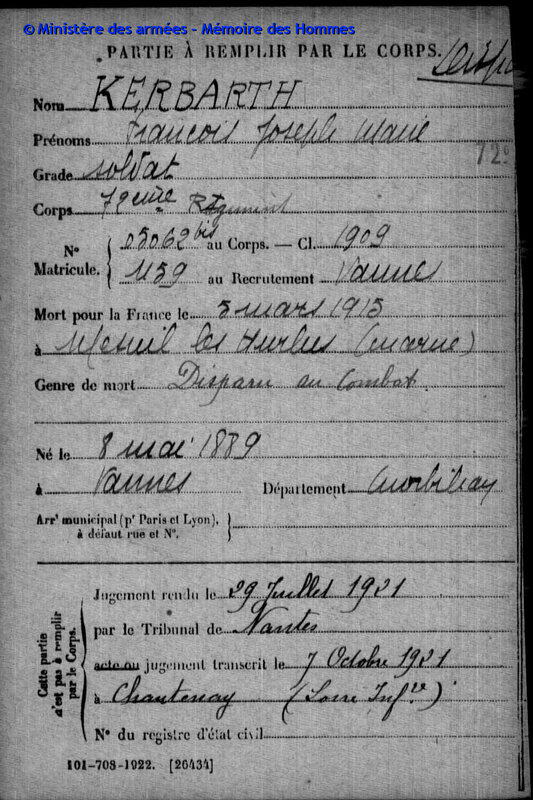 © Ministère des armées - Mémoire des Hommes
PARTIE À REMPLIR PAR LE CORPS.
Nom KERBARTH
Prénoms François Joseph Marie
Grade soldat
Corps 72ème Régiment
N° Matricule. 05062 bis au Corps. — Cl. 1909
1159 au Recrutement Vannes
Mort pour la France le 5 mars 1915
à Mesnil les Hurlus (Marne)
Genre de mort Disparu au Combat
Né le 8 mai 1889
à Vannes Département Morbihan
Arrt municipal (pr Paris et Lyon),
à défaut rue et N°.
Cette partie n'est pas à remplir par le Corps.
Jugement rendu le 29 Juillet 1921
par le Tribunal de Nantes
acte ou jugement transcrit le 7 Octobre 1921
à Chantenay (Loire Infre)
N° du registre d'état civil
101-708-1922. [26434]